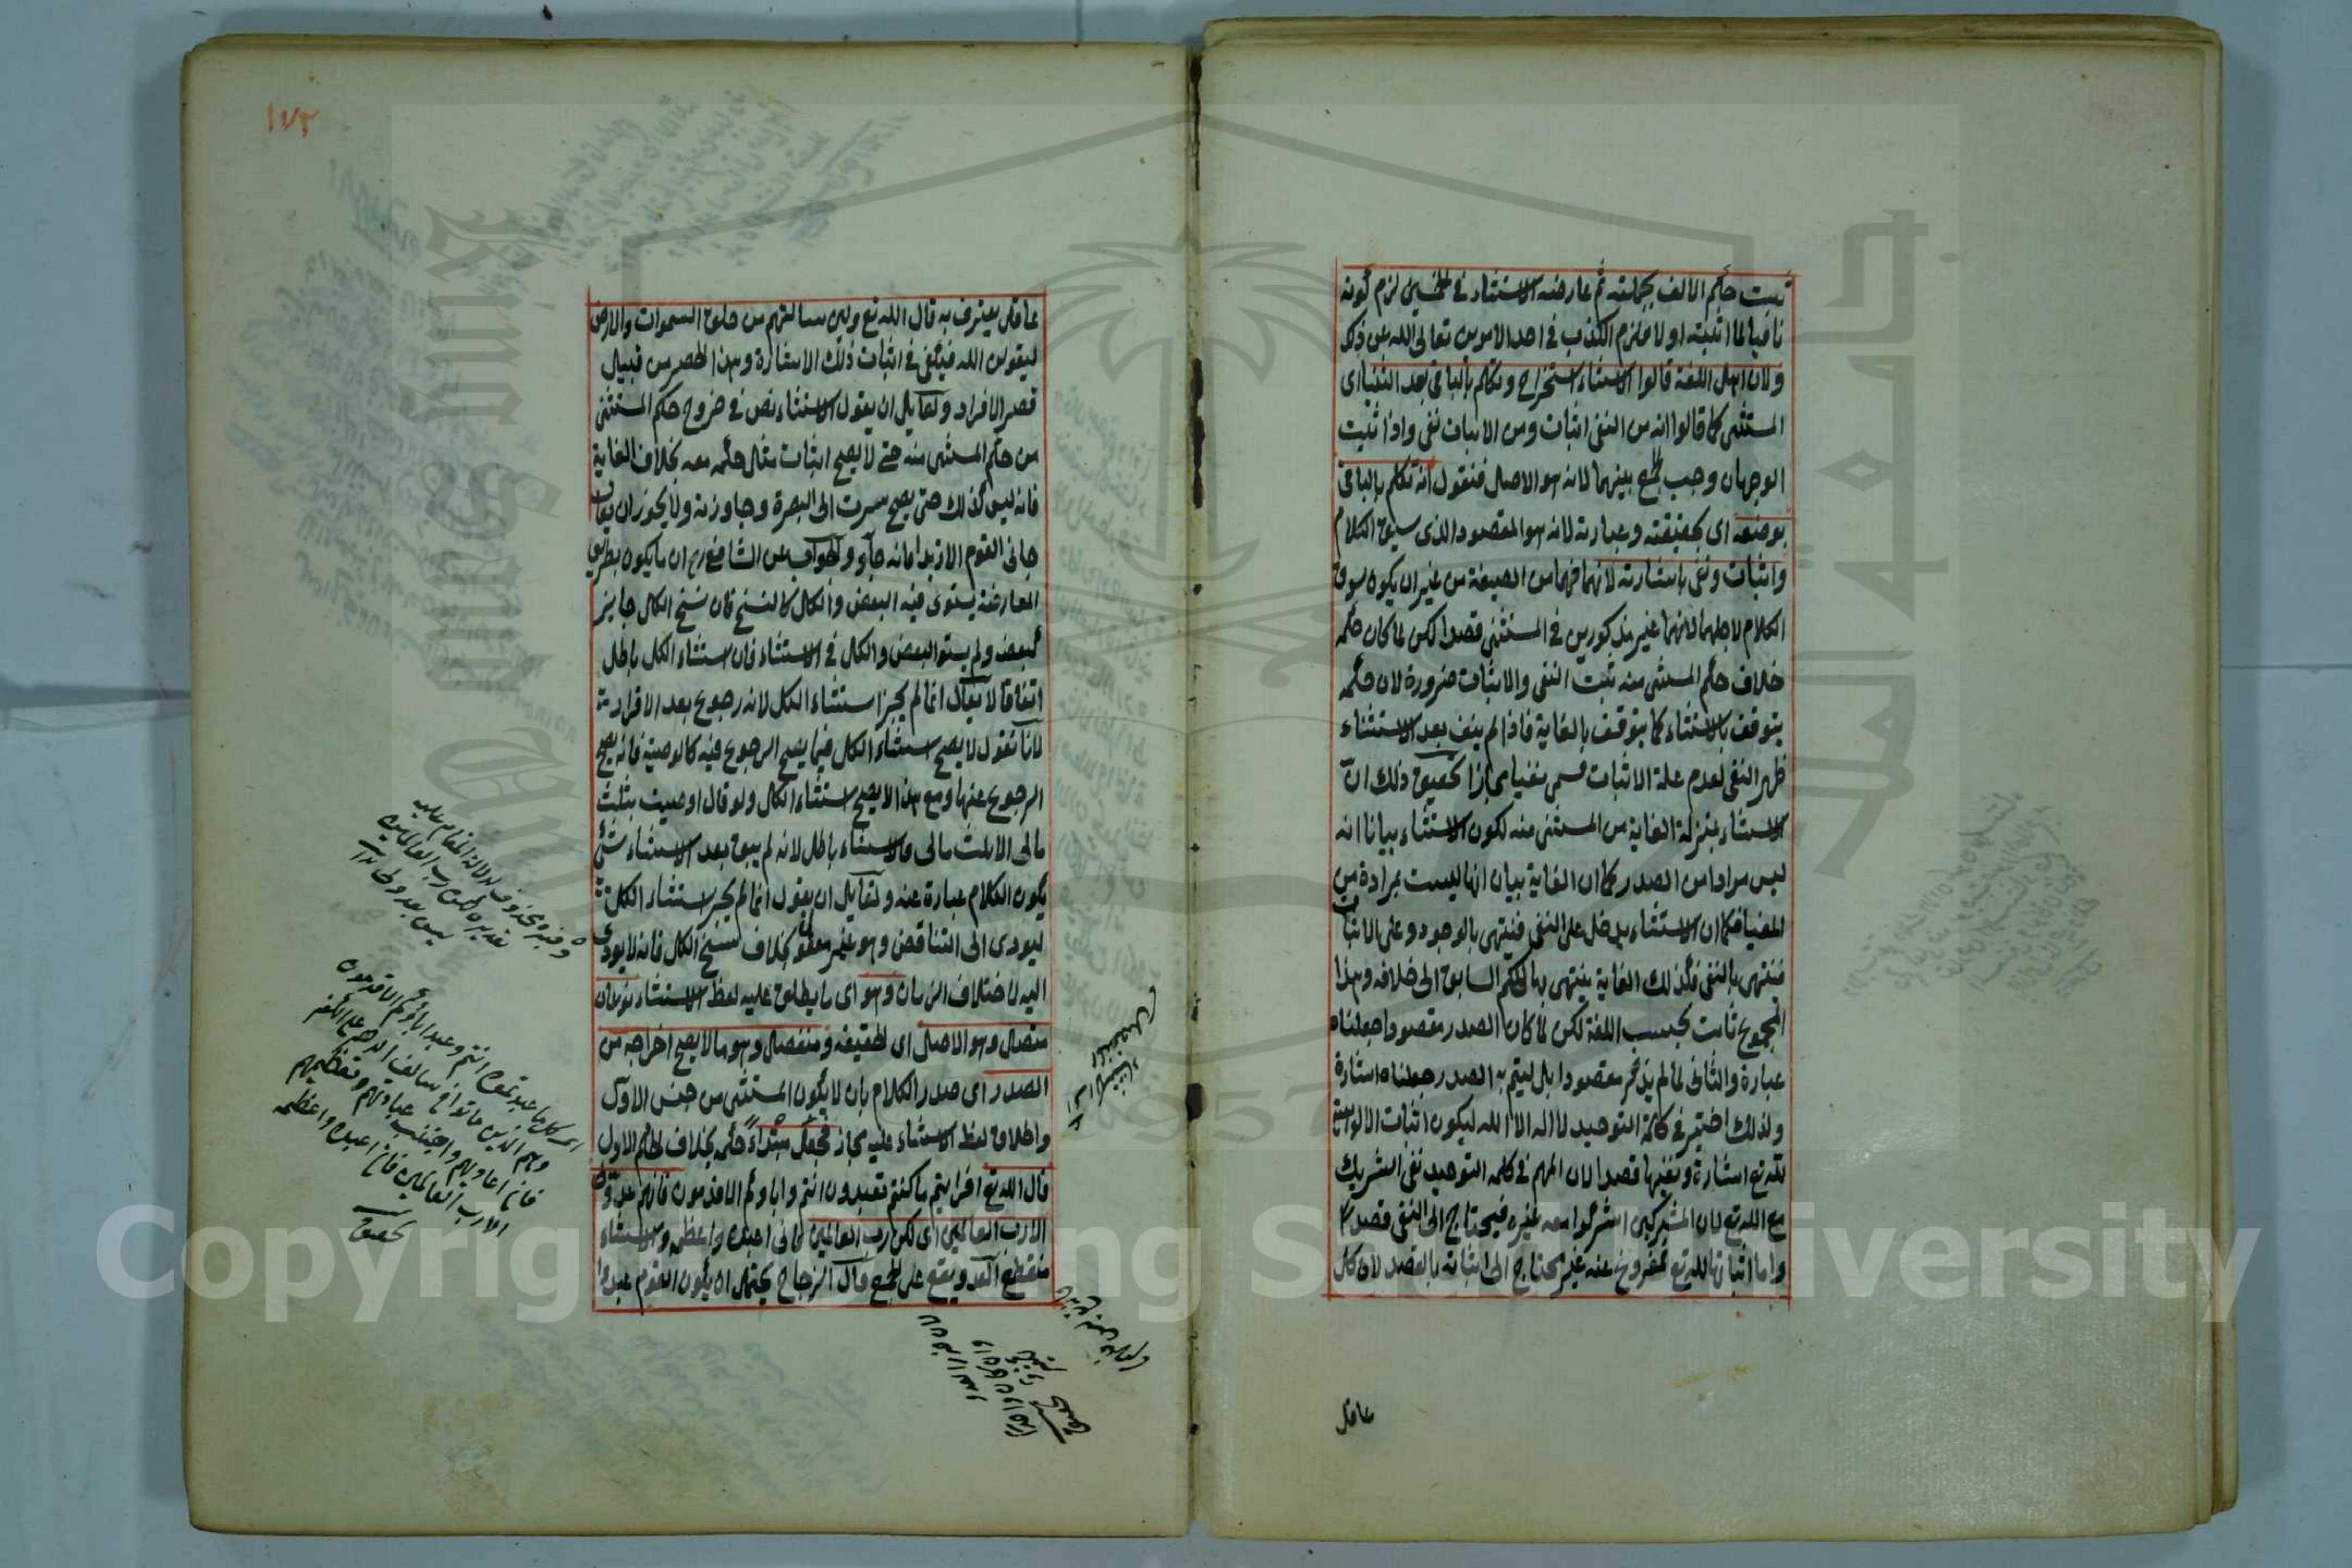 ثبت حكم الالف بجملته ثم عارضه الاستثناء في الخمسين لزم كونه
نافيا لما اثبته اولا فلزم الكذب في احد الامرين تعالى الله عن ذلك
ولان اهل اللغة قالوا الاستثناء استخراج وتكلم بالباقي بعد الثنيا اى
المستثنى كما قالوا انه من النفى اثبات ومن الاثبات نفى واذا ثبت
الوجهان وجب الجمع بينهما لانه هو الاصل فنقول انه تكلم بالباقي
بوضعه اى بحقيقته وعبارته لانه هو المقصود الذى سيق الكلام
واثبات ونفى باشارته لانهما فهما من الصيغة من غير ان يكون سوق
الكلام لاجلهما لانهما غير مذكورين في المستثنى قصدا لكن لما كان حكمه
خلاف حكم المستثنى منه ثبت النفى والاثبات ضرورة لان حكمه
يتوقف بالاستثناء كما يتوقف بالغاية فاذا لم يبق بعد الاستثناء
ظهر النفى لعدم علة الاثبات فسمى نفيا مجازا تحقيق ذلك ان
الاستثناء بمنزلة الغاية من المستثنى منه لكون الاستثناء بيانا انه
ليس مرادا من الصدر كما ان الغاية بيان انها ليست بمرادة من
المغيا فكما ان الاستثناء يدخل على النفى فينتهى بالوجود وعلى الاثبات
فينتهى بالنفى فكذلك الغاية ينتهى بها الحكم السابق الى خلافه وهذا
المجموع ثابت بحسب اللغة لكن لما كان الصدر مقصودا جعلناه
عبارة والثانى لما لم يذكر مقصودا بل ليتم به الصدر جعلناه اشارة
ولذلك اختير في كلمة التوحيد لا اله الا الله ليكون اثبات الالوهية
لله تع اشارة ونفيها قصدا لان المهم في كلمة التوحيد نفى الشريك
مع الله تع لان المشركين اشركوا معه غيره فيحتاج الى النفى قصدا
واما اثباتها لله تع فمفروغ عنه غير محتاج الى اثباته بالقصد لان كل
عاقل
١٧٣
عاقل يعترف به قال الله تع ولئن سالتهم من خلق السموات والارض
ليقولن الله فيكفى في اثبات ذلك الاشارة وهذا الحصر من قبيل
قصر الافراد ولقايل ان يقول الاستثناء نص في خروج حكم المستثنى
من حكم المستثنى منه حتى لا يصح اثبات مثل حكمه معه بخلاف الغاية
فانه ليس كذلك حتى يصح سرت الى البصرة وجاوزته ولا يجوز ان يقال
جانى القوم الا زيدا فانه جاء والجواب عن الشافعى رح ان ما يكون بطريق
المعارضة يستوى فيه البعض والكل كالنسخ فان نسخ الكل جايز
كبعضه ولم يستو البعض والكل في الاستثناء فان استثناء الكل باطل
اتفاقا لا يقال انما لم يجز استثناء الكل لانه رجوع بعد الاقرار
لانا نقول لا يصح استثناء الكل فيما يصح الرجوع فيه كالوصية فانه يصح
الرجوع عنها ومع هذا لا يصح استثناء الكل ولو قال اوصيت بثلث
مالى الا ثلث مالى فالاستثناء باطل لانه لم يبق بعد الاستثناء شئ
يكون الكلام عبارة عنه ولقايل ان يقول انما لم يجز استثناء الكل
ليودى الى التناقض وهو غير معقول بخلاف نسخ الكل فانه لا يودى
اليه لاختلاف الزمان وهو اى ما يطلق عليه لفظ الاستثناء نوعان
متصل وهو الاصل اى الحقيقة ومنفصل وهو ما لا يصح اخراجه من
الصدر اى صدر الكلام بان لا يكون المستثنى من جنس الاول
واطلاق لفظ الاستثناء عليه مجاز فجعل مبتداء حكمه بخلاف الحكم الاول
قال الله تع افرايتم ما كنتم تعبدون انتم واباؤكم الاقدمون فانهم عدو لى
الا رب العالمين اى لكن رب العالمين فانى اعبده واعظمه والاستثناء
منقطع العدو يقع على الجمع قال الزجاج يحتمل ان يكون القوم عبدوا
اى كل ما عبدتموه انتم وعبد اباؤكم الاقدمون
وهم الذين ماتوا في سالف الدهر على الكفر
فانى اعاديهم واجتنب عبادتهم وتعظيمهم
الا رب العالمين فانى اعبده واعظمه